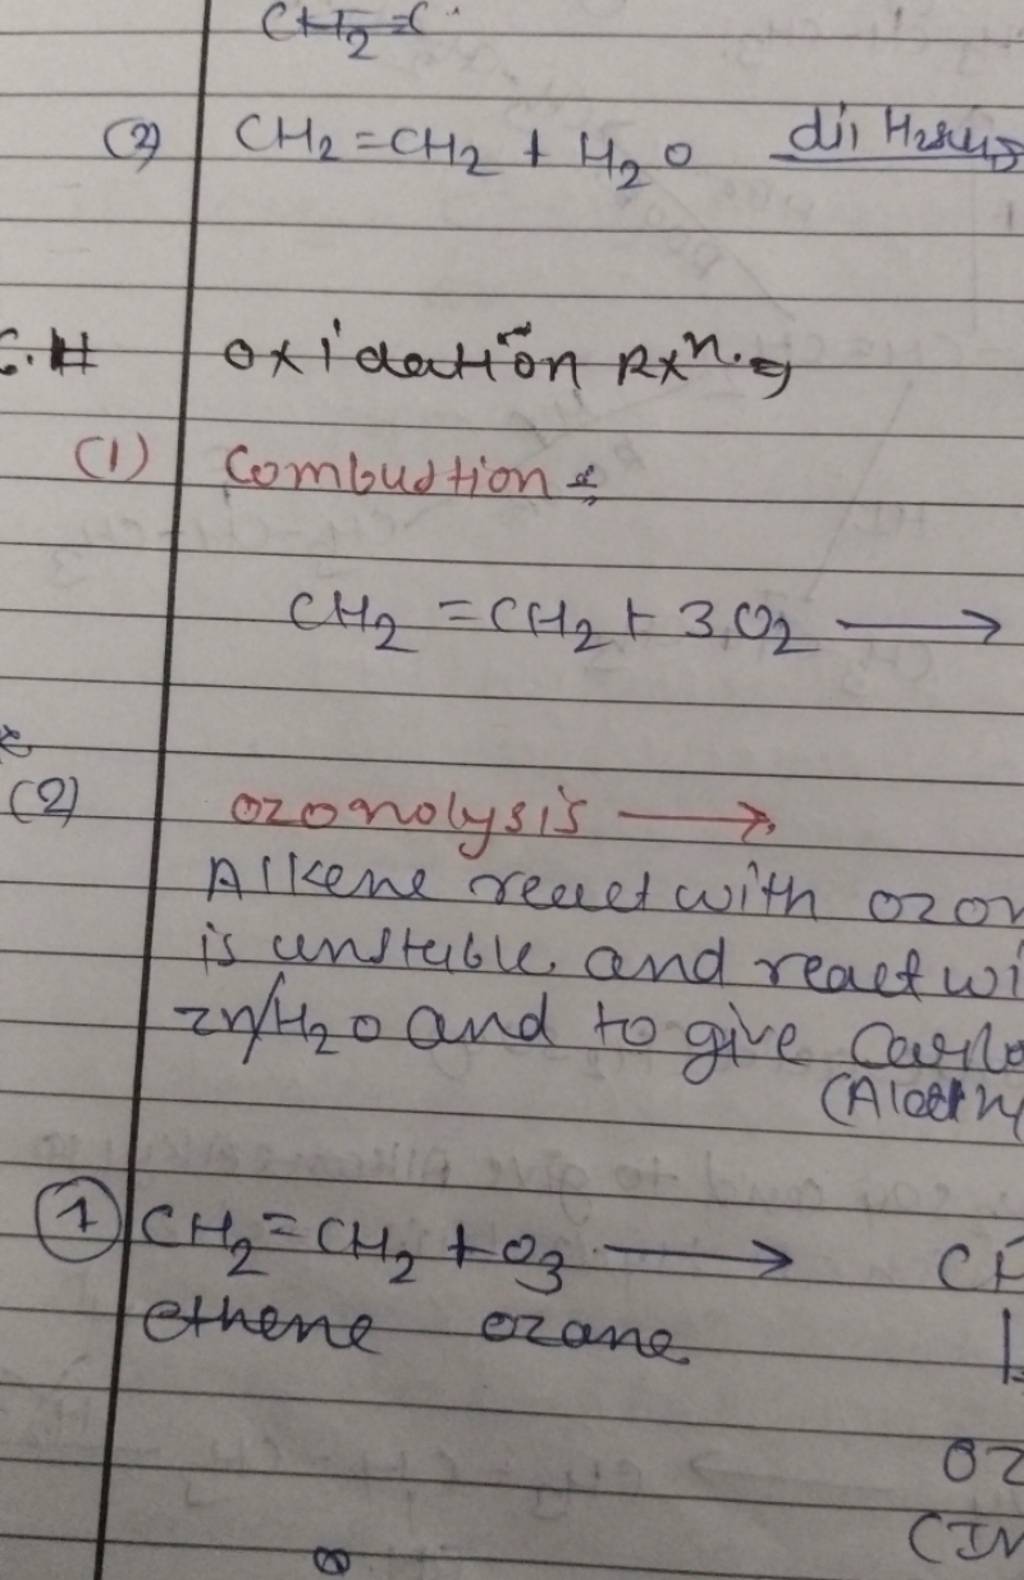 (2) CH2=CH2 + H2O dil H2SO4
oxidation Rxn.
(1) Combustion
CH2=CH2 + 3O2 →
(2) ozonolysis →
Alkene react with
is unstable and react
zn/H2O and to give
① CH2=CH2 + O3 →
ethene ozane